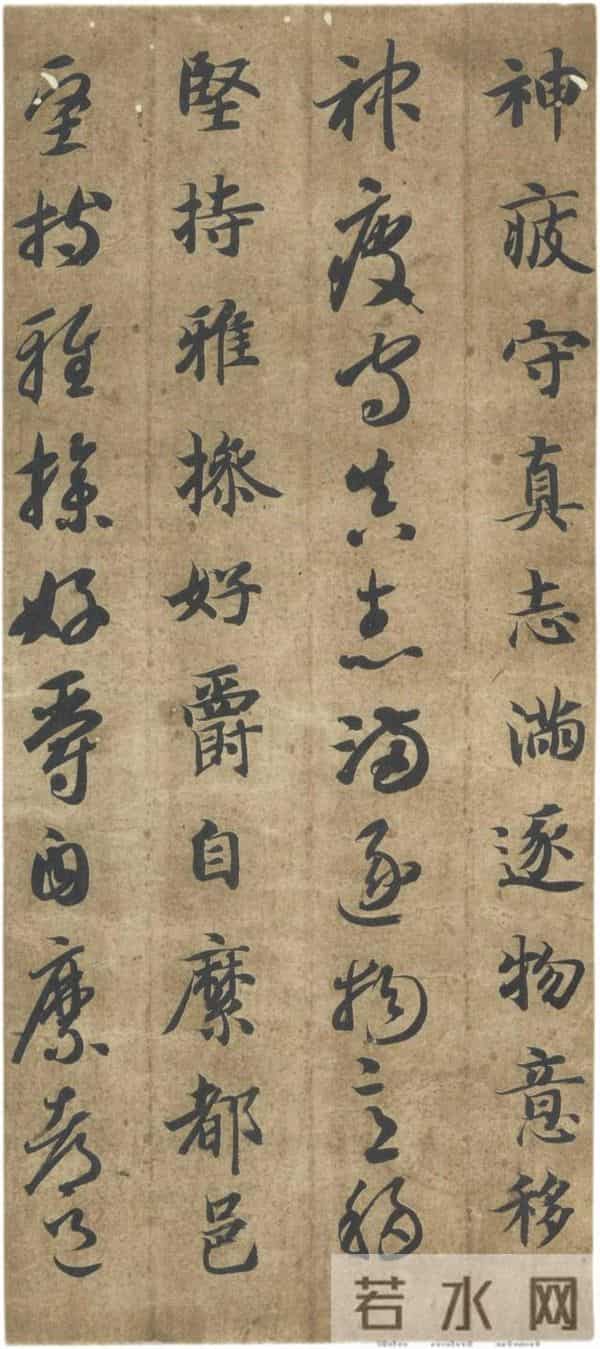 神疲守真志滿逐物意移
神疲守真志滿逐物意移
堅持雅操好爵自縻都邑
堅持雅操好爵自縻都邑
若水网